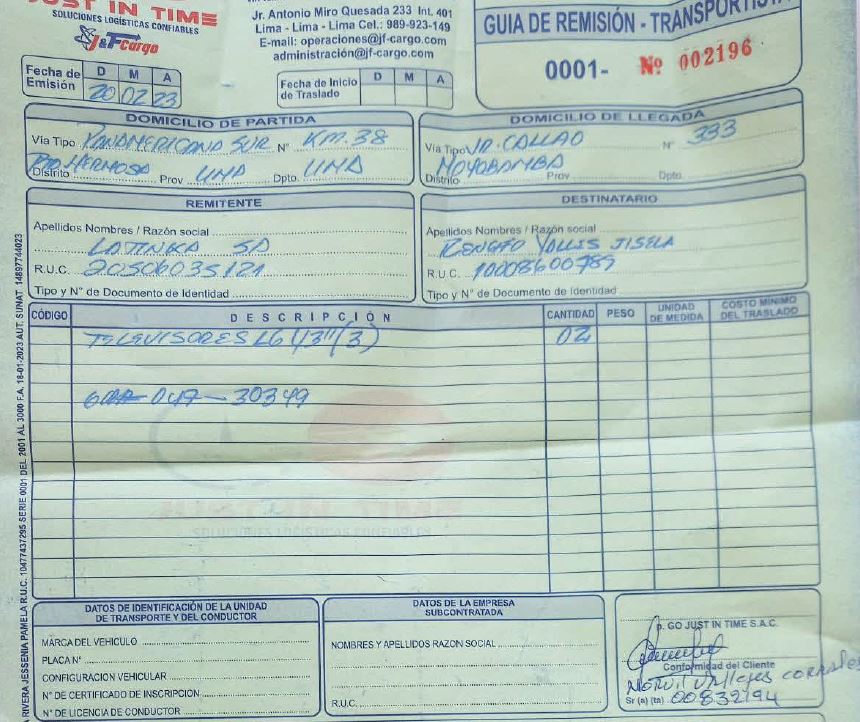 JUST IN TIME
SOLUCIONES LOGÍSTICAS CONFIABLES
J&F Cargo
Jr. Antonio Miro Quesada 233 Int. 401
Lima - Lima - Lima Cel.: 989-923-149
E-mail: operaciones@jf-cargo.com
administración@jf-cargo.com
GUIA DE REMISIÓN - TRANSPORTISTA
0001- Nº 002196
Fecha de Emisión D M A
20 02 23
Fecha de Inicio de Traslado D M A
DOMICILIO DE PARTIDA
Vía Tipo PANAMERICANA SUR Nº KM. 38
Distrito HERMOSA Prov LIMA Dpto. LIMA
DOMICILIO DE LLEGADA
Vía Tipo JR. CALLAO Nº 333
Distrito MOYOBAMBA Prov Dpto.
REMITENTE
Apellidos Nombres / Razón social
LATINKA SA
R.U.C. 20506035121
Tipo y N° de Documento de Identidad
DESTINATARIO
Apellidos Nombres / Razón social
RENGIFO VALLES JISELA
R.U.C. 10008600789
Tipo y N° de Documento de Identidad
CÓDIGO DESCRIPCIÓN CANTIDAD PESO UNIDAD DE MEDIDA COSTO MINIMO DEL TRASLADO
TELEVISORES LG 43" (3) 02
047-30349
JUST IN TIME
SOLUCIONES LOGÍSTICAS CONFIABLES
DATOS DE IDENTIFICACIÓN DE LA UNIDAD
DE TRANSPORTE Y DEL CONDUCTOR
MARCA DEL VEHICULO
PLACA Nº
CONFIGURACION VEHICULAR
N° DE CERTIFICADO DE INSCRIPCION
N° DE LICENCIA DE CONDUCTOR
DATOS DE LA EMPRESA
SUBCONTRATADA
NOMBRES Y APELLIDOS RAZON SOCIAL
R.U.C.
p. GO JUST IN TIME S.A.C.
Conformidad del Cliente
Vallejos corrales
Sr (a) (ta) 00832194
RIVERA JESSENIA PAMELA R.U.C. 10477437295 SERIE 0001 DEL 2001 AL 3000 F.A. 18-01-2023 AUT. SUNAT 14897744023